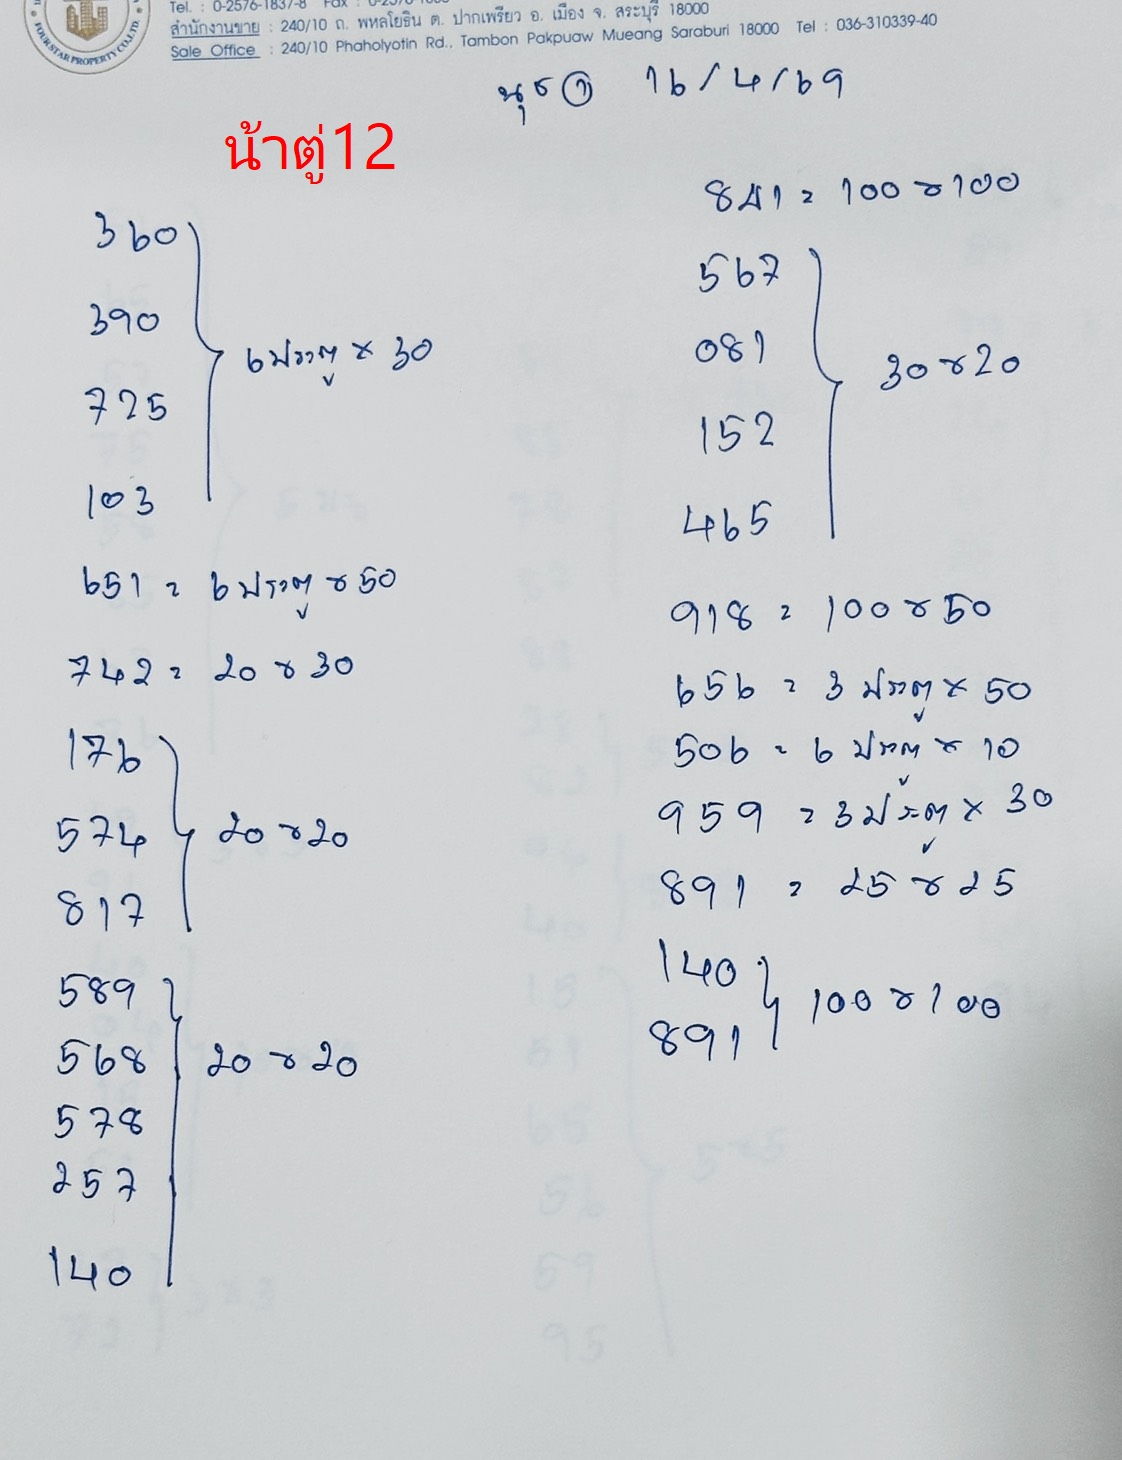 Tel. : 0-2576-1837-8
สำนักงานขาย : 240/10 ถ. พหลโยธิน ต. ปากเพรียว อ. เมือง จ. สระบุรี 18000
Sale Office : 240/10 Phaholyotin Rd., Tambon Pakpuaw Mueang Saraburi 18000 Tel : 036-310339-40
FOURSTAR PROPERTY CO.,LTD.
นุช ① 16/4/69
น้าตู่12
360
390
725
103
6 ประตู × 30
651 = 6 ประตู × 50
742 = 20 × 30
176
574
817
20 × 20
589
568
578
257
140
20 × 20
841 = 100 × 100
567
081
152
465
30 × 20
918 = 100 × 50
656 = 3 ประตู × 50
506 = 6 ประตู × 10
959 = 3 ประตู × 30
891 = 25 × 25
140
891
100 × 100